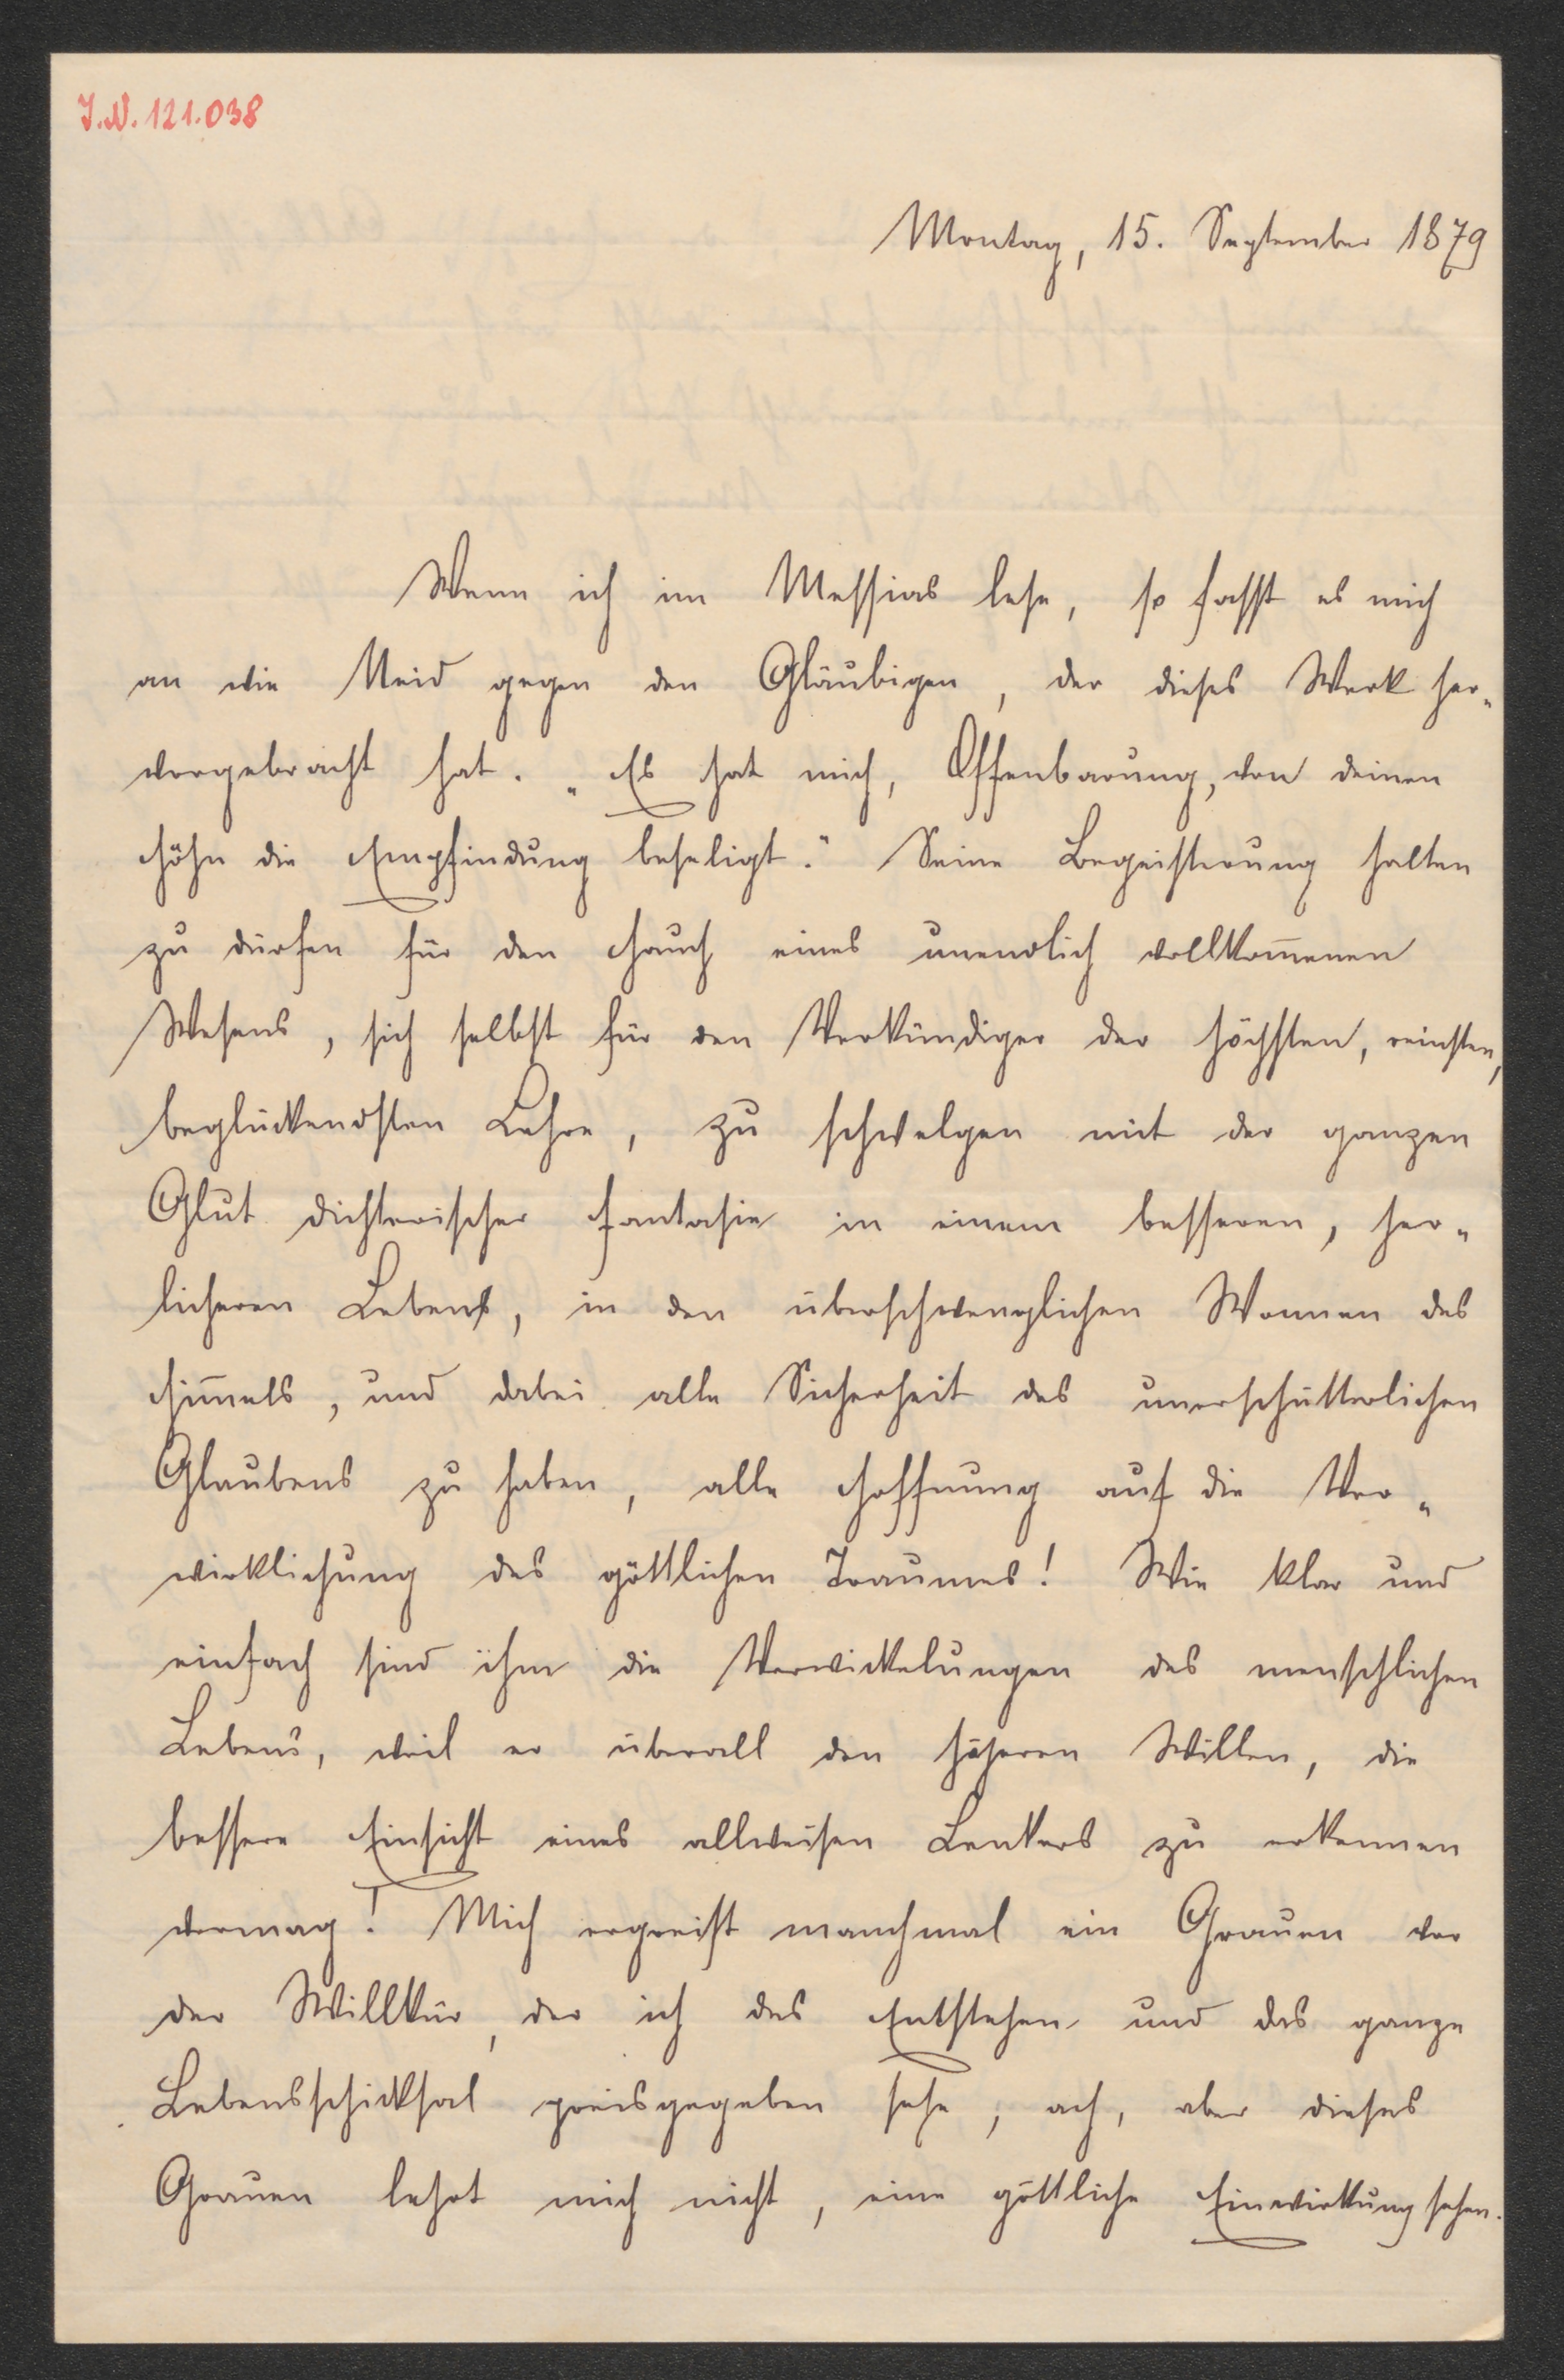 J.N. 121.038
Montag, 15. September 1879
Wenn ich im Messias lese, so fasst es mich
an wie Neid gegen den Gläubigen, der dieses Werk her„
vorgebracht hat. „Es hat mich, Offenbarung, von deinen
Höhn die Empfindung beseligt.“ Seine Begeisterung halten
zu dürfen für den Hauch eines unendlich vollkom̄enen
Wesens, sich selbst für den Verkündiger der höchsten, reinsten,
beglückendsten Lehre, zu schwelgen mit der ganzen
Glut dichterischer Fantasie in einem besseren, her„
licheren Leben, in den überschwenglichen Wonnen des
Him̄els, und dabei alle Sicherheit des unerschütterlichen
Glaubens zu haben, alle Hoffnung auf die Ver„
wirklichung des göttlichen Traumes! Wie klar und
einfach sind ihm die Verwickelungen des menschlichen
Lebens, weil er überall den höheren Willen, die
bessere Einsicht eines allweisen Lenkers zu erkennen
vermag! Mich ergreift manchmal ein Grauen vor
der Willkür, der ich das Entstehen und das ganze
Lebensschicksal preisgegeben sehe, ach, aber dieses
Grauen lehrt mich nicht, eine göttliche Einwirkung sehen.